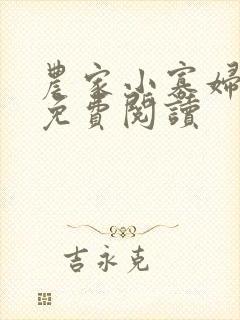 農家小寡婦
免費閱讀
吉永克